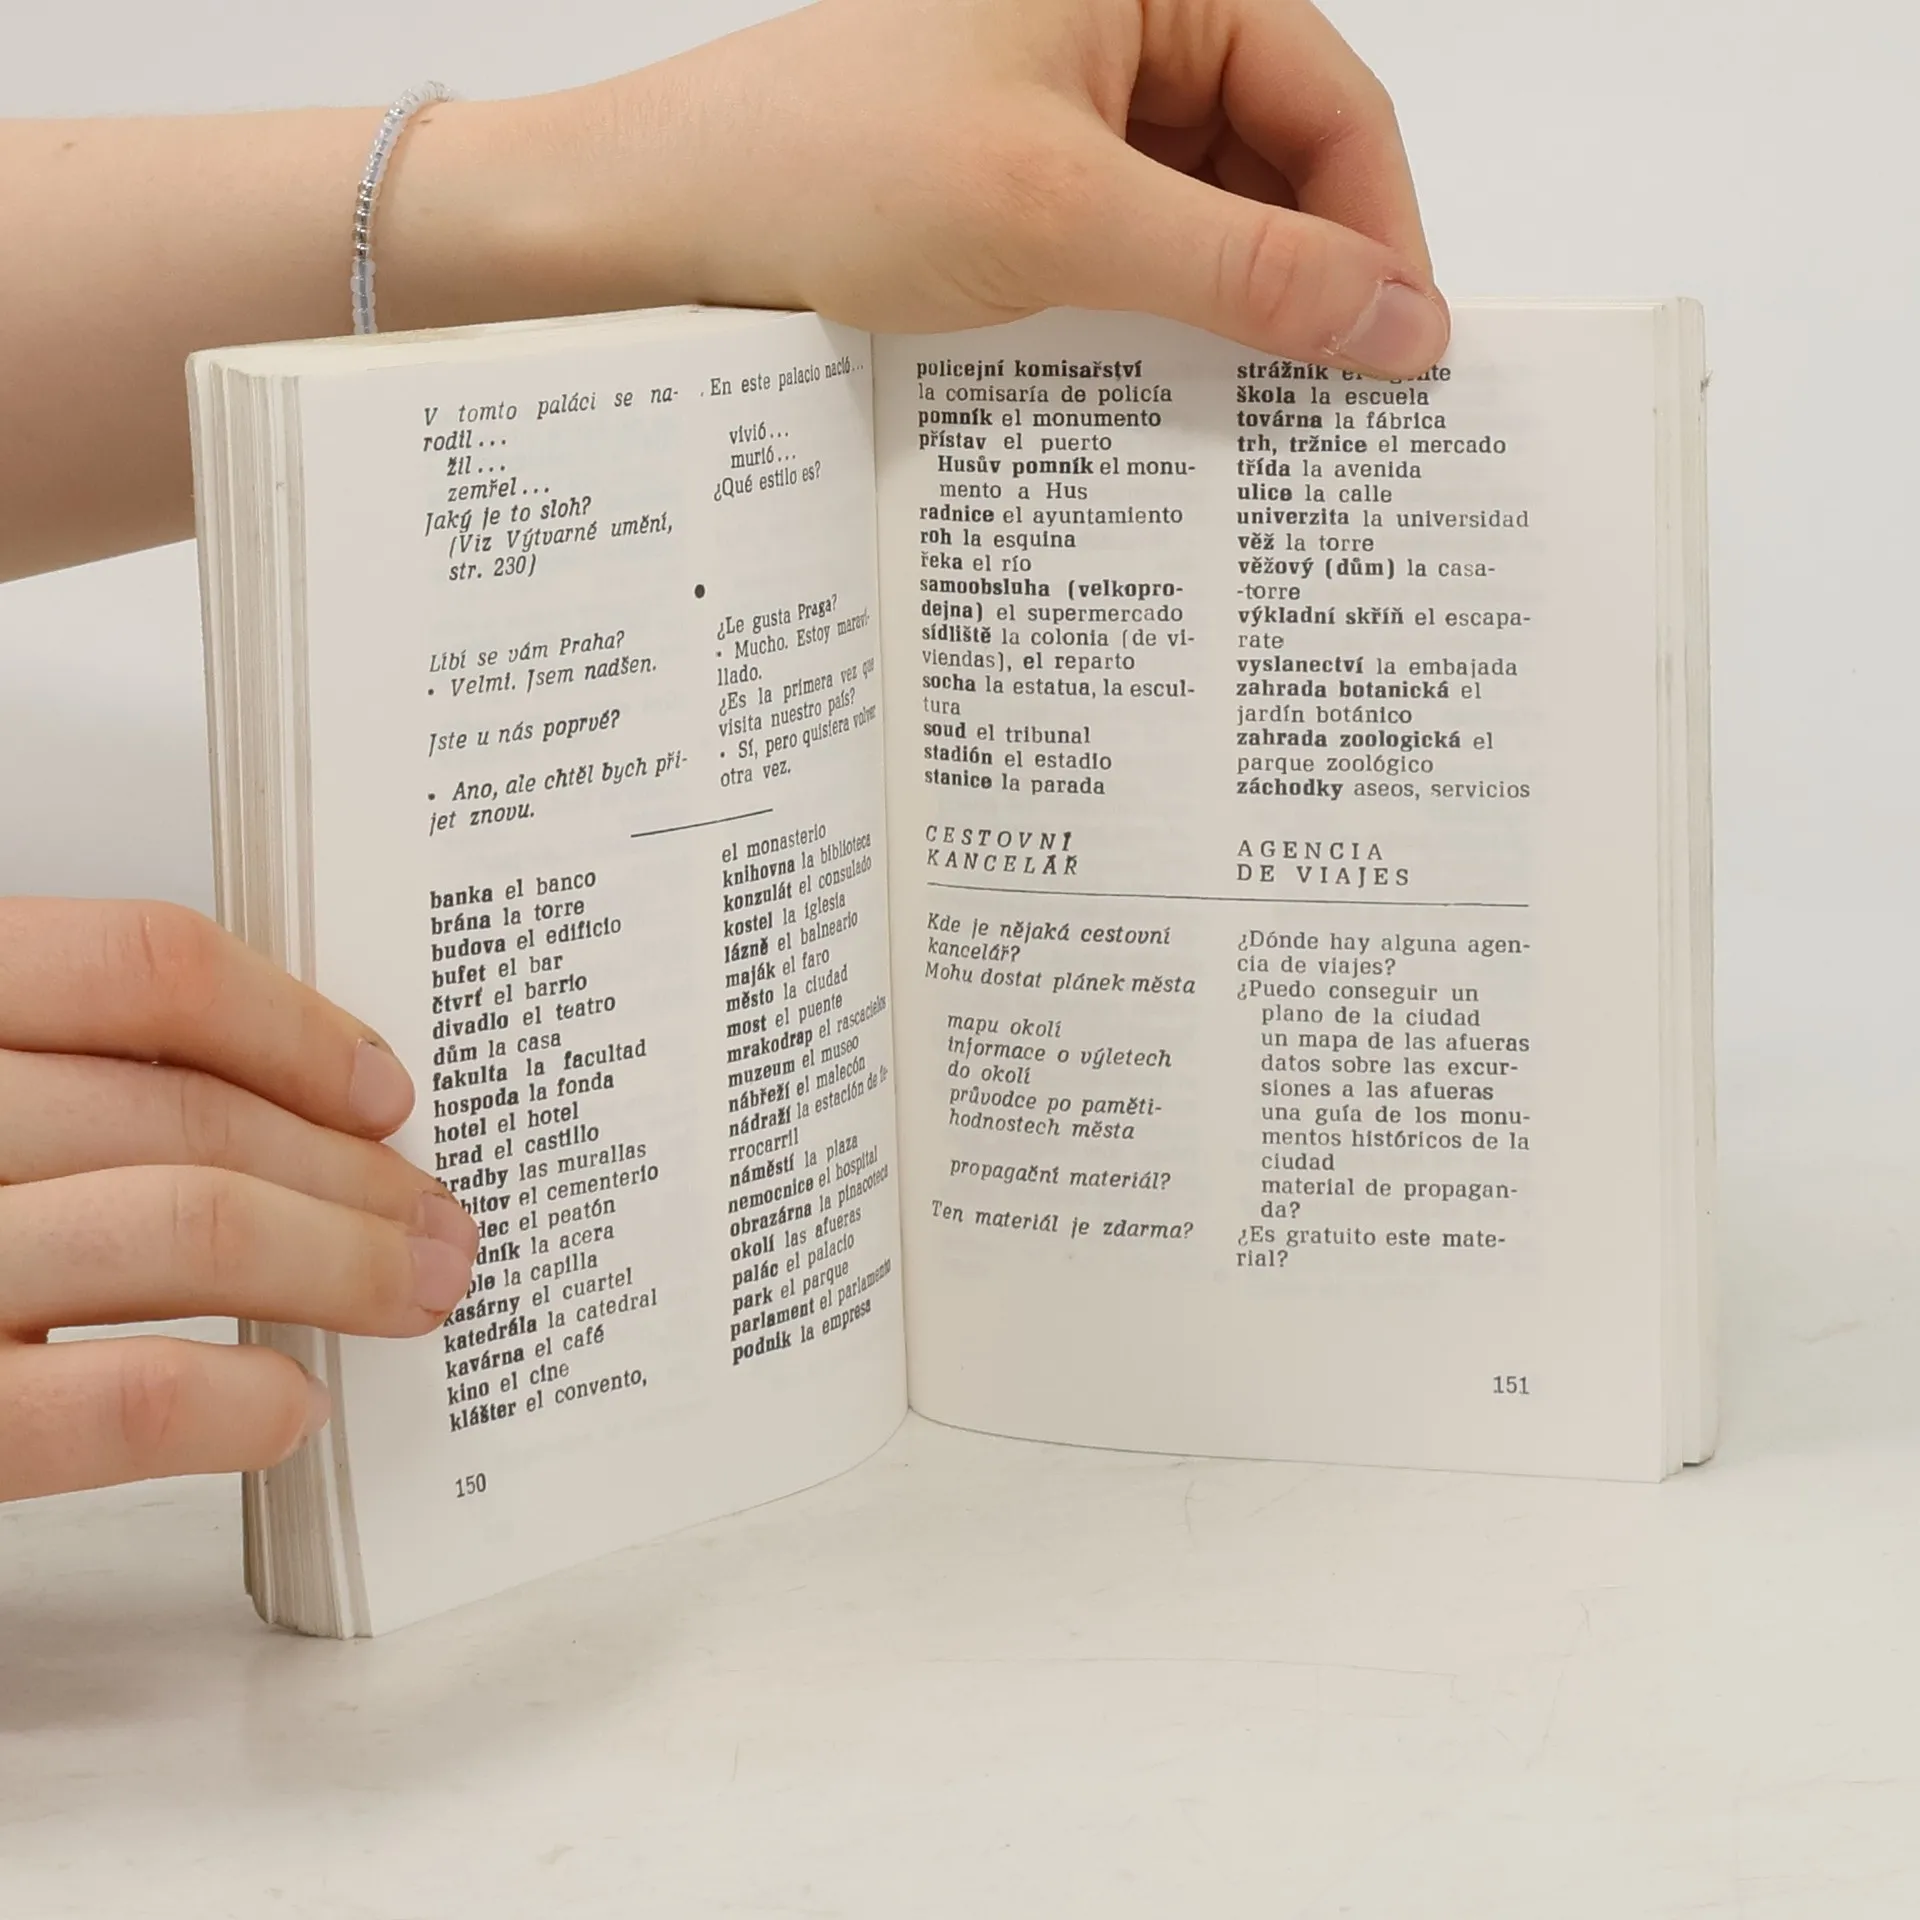 V tomto paláci se na-
rodil...
žil...
zemřel...
Jaký je to sloh?
(Viz Výtvarné umění,
str. 230)
. En este palacio nació...
vivió...
murió...
¿Qué estilo es?
•
Líbí se vám Praha?
• Velmi. Jsem nadšen.
Jste u nás poprvé?
• Ano, ale chtěl bych při-
jet znovu.
¿Le gusta Praga?
• Mucho. Estoy maravi-
llado.
¿Es la primera vez que
visita nuestro país?
• Sí, pero quisiera volver
otra vez.
banka el banco
brána la torre
budova el edificio
bufet el bar
čtvrť el barrio
divadlo el teatro
dům la casa
fakulta la facultad
hospoda la fonda
hotel el hotel
hrad el castillo
hradby las murallas
el cementerio
el peatón
la acera
la capilla
kasárny el cuartel
katedrála la catedral
kavárna el café
kino el cine
klášter el convento,
el monasterio
knihovna la biblioteca
konzulát el consulado
kostel la iglesia
lázně el balneario
maják el faro
město la ciudad
most el puente
mrakodrap el rascacielos
muzeum el museo
nábřeží el malecón
nádraží la estación de fe-
rrocarril
náměstí la plaza
nemocnice el hospital
obrazárna la pinacoteca
okolí las afueras
palác el palacio
park el parque
parlament el parlamento
podnik la empresa
150
policejní komisařství
la comisaría de policía
pomník el monumento
přístav el puerto
Husův pomník el monu-
mento a Hus
radnice el ayuntamiento
roh la esquina
řeka el río
samoobsluha (velkopro-
dejna) el supermercado
sídliště la colonia (de vi-
viendas), el reparto
socha la estatua, la escul-
tura
soud el tribunal
stadión el estadio
stanice la parada
strážník el
škola la escuela
továrna la fábrica
trh, tržnice el mercado
třída la avenida
ulice la calle
univerzita la universidad
věž la torre
věžový (dům) la casa-
-torre
výkladní skříň el escapa-
rate
vyslanectví la embajada
zahrada botanická el
jardín botánico
zahrada zoologická el
parque zoológico
záchodky aseos, servicios
CESTOVNÍ
KANCELÁŘ
AGENCIA
DE VIAJES
Kde je nějaká cestovní
kancelář?
Mohu dostat plánek města
mapu okolí
informace o výletech
do okolí
průvodce po paměti-
hodnostech města
propagační materiál?
Ten materiál je zdarma?
¿Dónde hay alguna agen-
cia de viajes?
¿Puedo conseguir un
plano de la ciudad
un mapa de las afueras
datos sobre las excur-
siones a las afueras
una guía de los monu-
mentos históricos de la
ciudad
material de propagan-
da?
¿Es gratuito este mate-
rial?
151